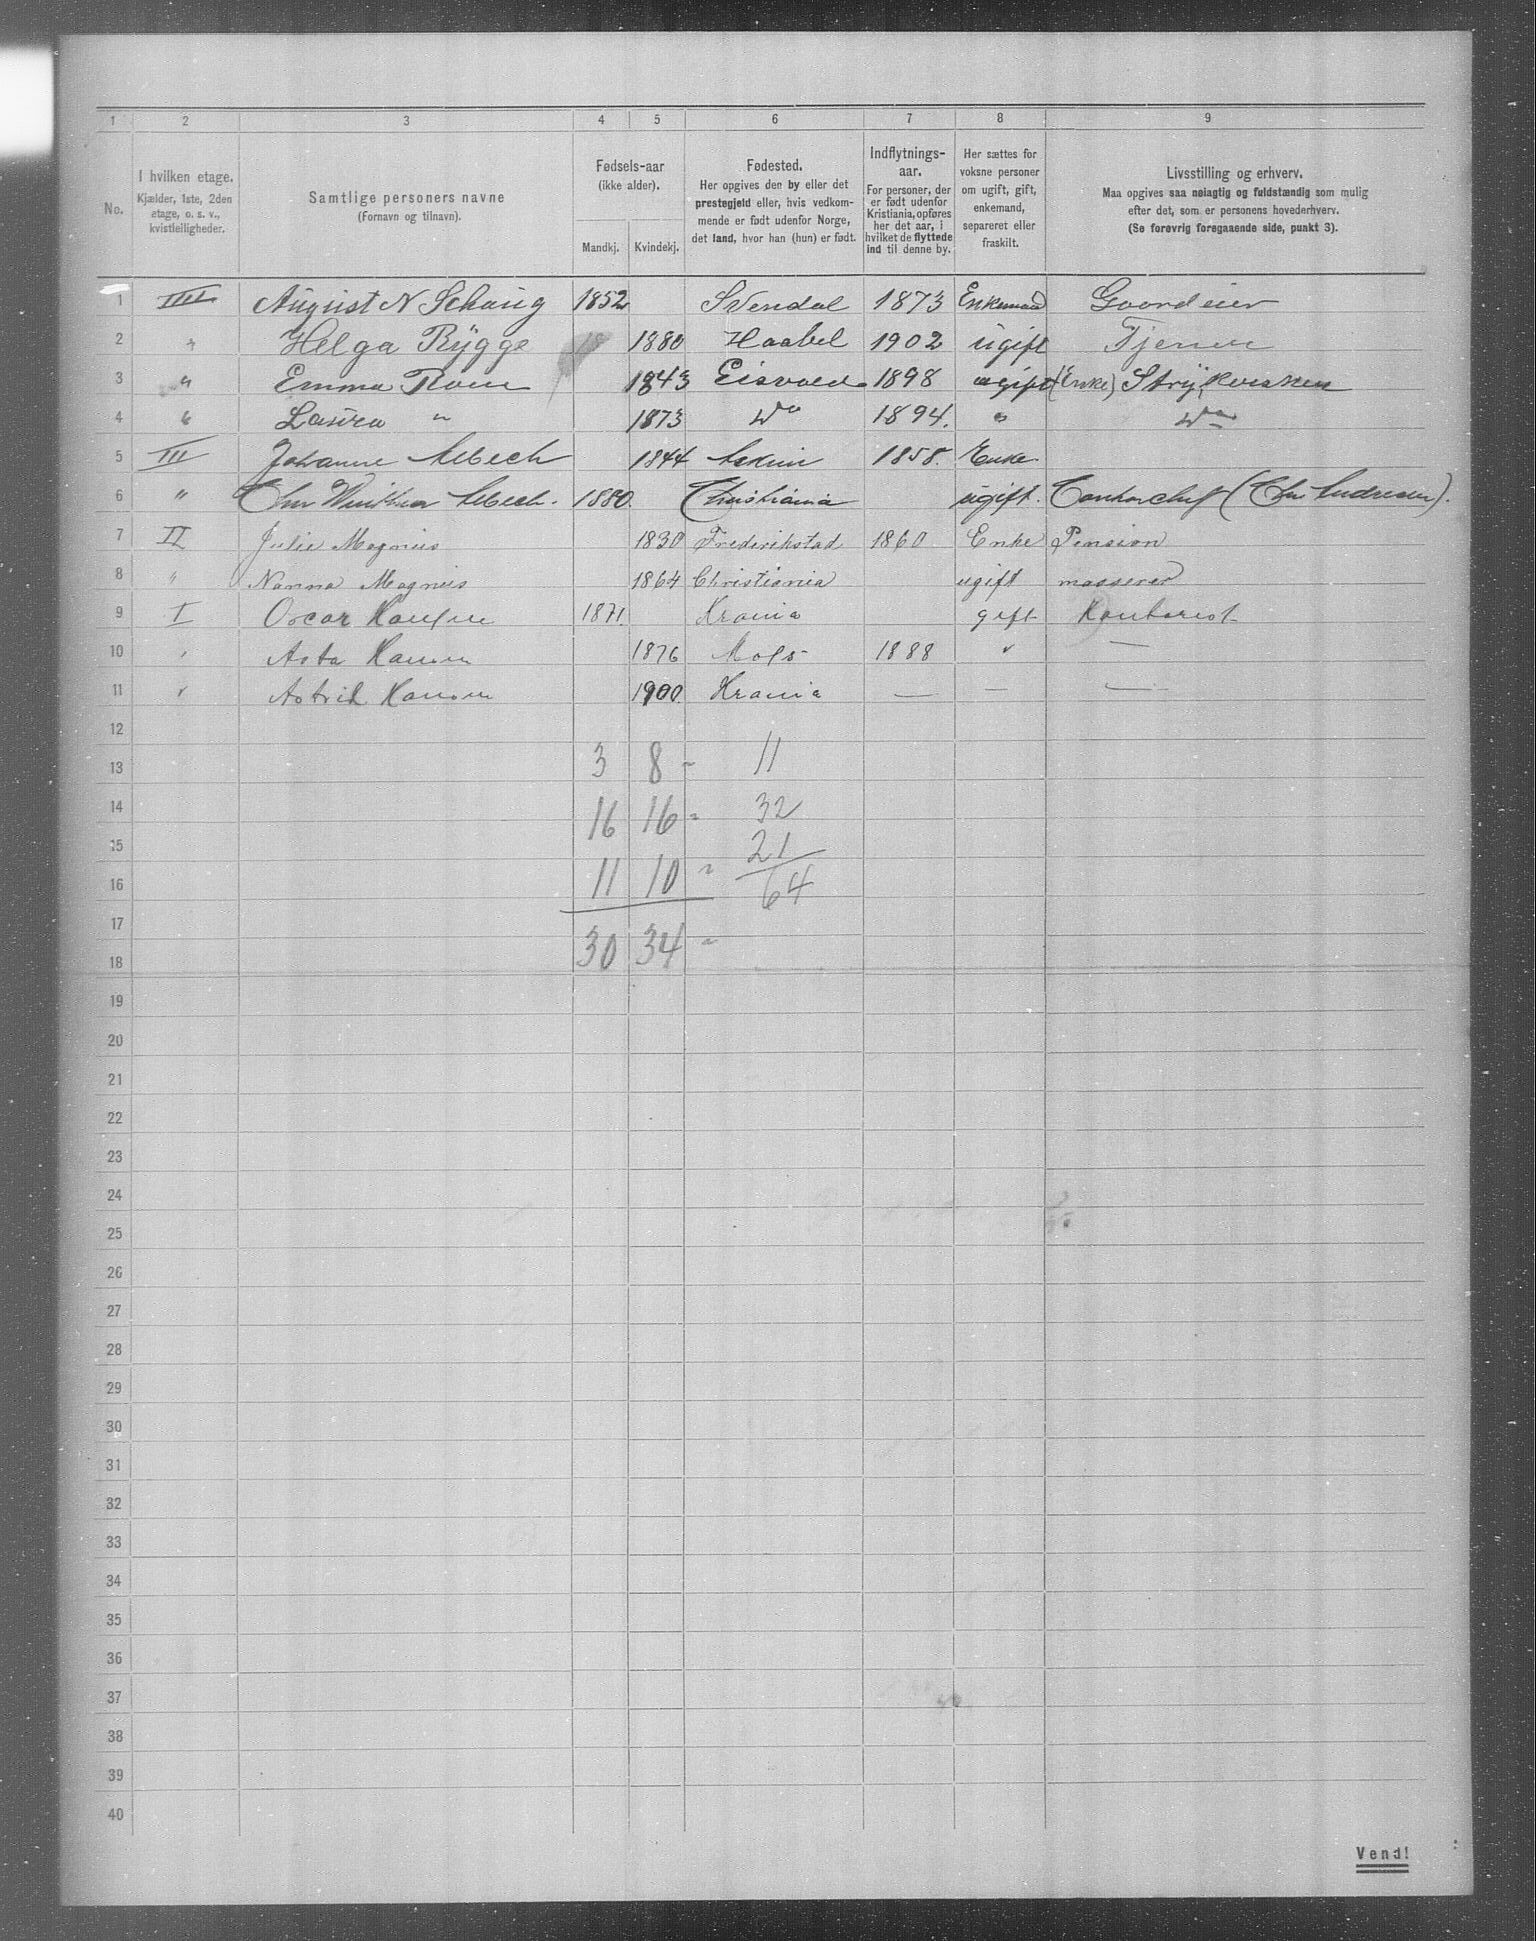 1 2 3 4 5 6 7 8 9
No.
I hvilken etage.
Kjælder, 1ste, 2den
etage, o. s. v.,
kvistleiligheder.
Samtlige personers navne
(Fornavn og tilnavn).
Fødsels-aar
(ikke alder).
Mandkj. Kvindekj.
Fødested.
Her opgives den by eller det
prestegjeld eller, hvis vedkom-
mende er født udenfor Norge,
det land, hvor han (hun) er født.
Indflytnings-
aar.
For personer, der
er født udenfor
Kristiania, opføres
her det aar, i
hvilket de flyttede
ind til denne by.
Her sættes for
voksne personer
om ugift, gift,
enkemand,
separeret eller
fraskilt.
Livsstilling og erhverv.
Maa opgives saa nøiagtig og fuldstændig som mulig
efter det, som er personens hovederhverv.
(Se forøvrig foregaaende side, punkt 3).
1 IIII August N Schaug 1852 1873 Enkemand Gaardeier
2 " Helga Rygge 1880 Haabøl 1902 ugift Tjener
3 " Emma 1843 Eisvold 1898 ugift (Enke)
4 " Laura " 1873 Do 1894. " Do
5 III Johanne 1844 Askim 1858. Enke
6 " Chr 1880. Christiania ugift. Contorchef (Chr Andresen).
7 II Julie Magnus 1830 Frederikstad 1860 Enke Pension
8 " Nanna Magnus 1864 Christiania ugift masserer
9 I Oscar Hansen 1871. Krania gift Kontorist
10 " Asta Hansen 1876 Moss 1888 " —
11 " Astrid Hansen 1900. Krania — — —
12
13 3 8 - 11
14 16 16 - 32
15 21
16 11 10 - 64
17
18 30 34 -
19
20
21
22
23
24
25
26
27
28
29
30
31
32
33
34
35
36
37
38
39
40
Vend!